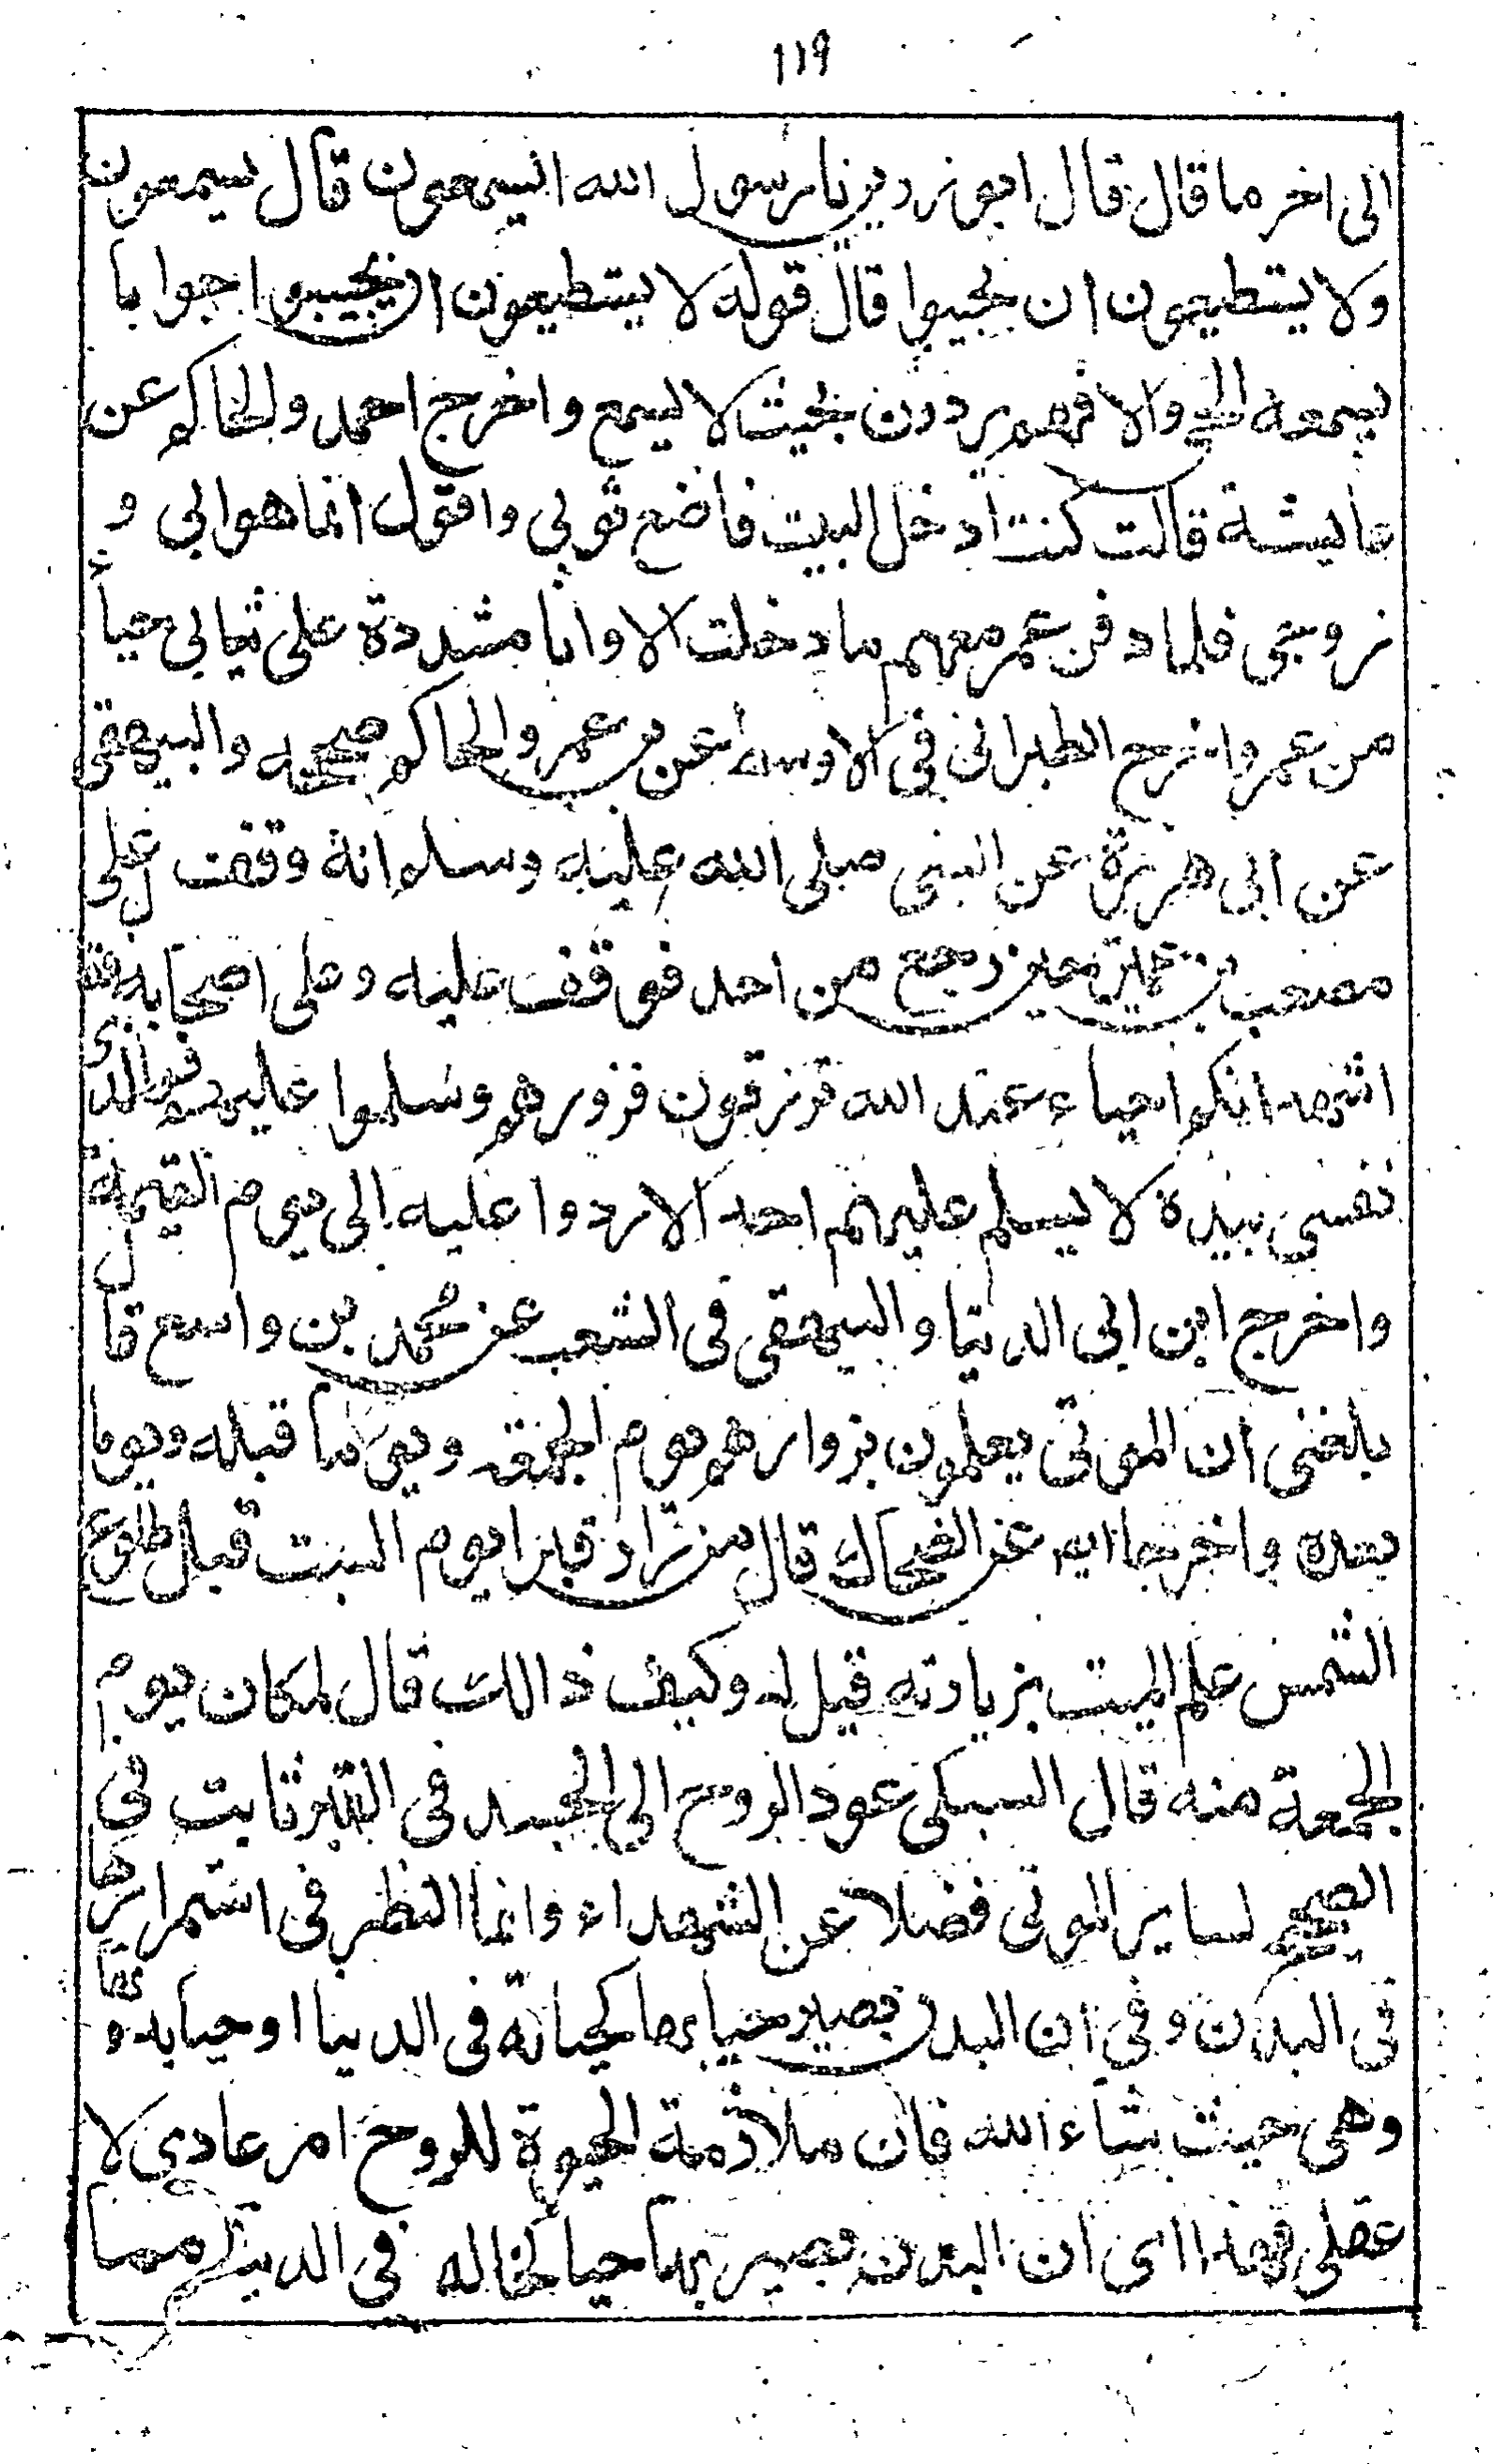 ١١٩
الى اخر ما قال قال ابو زرين يا رسول الله ايسمعون قال يسمعون
ولا يستطيعون ان يجيبوا قال قوله لا يستطيعون ان يجيبوا جوابا
يسمعه الحي والا فهم يردون بحيث لا يسمع واخرج احمد والحاكم عن
عايشة قالت كنت ادخل البيت فاضع ثوبي واقول انما هو ابي و
زوجى فلما دفن عمر معهم ما دخلت الا وانا مشددة على ثيابي حياً
من عمر واخرج الطبرانى في الاوسط عن بن عمر والحاكم صححه والبيهقى
عن ابى هريرة عن النبى صلى الله عليه وسلم انه وقف على
مصعب بن عمير حين رجع من احد فوقف عليه وعلى اصحابه فقال
اشهد انكم احياء عند الله ترزقون فزورهم وسلموا عليهم فوالذى
نفسى بيده لا يسلم عليهم احد الا ردوا عليه الى يوم القيمة
واخرج ابن ابى الدنيا والبيهقى فى الشعب عن محمد بن واسع قال
بلغنى ان الموتى يعلمون بزوارهم يوم الجمعة ويوما قبله ويوما
بعده واخرجا ايه عن الضحاك قال من زار قبرا يوم السبت قبل طلوع
الشمس علم الميت بزيارته قيل له وكيف ذالك قال لمكان يوم
الجمعة منه قال السبكى عود الروح الى الجسد فى القبر ثابت فى
الصحيح لساير الموتى فضلا عن الشهداء وانما النظر فى استمرارها
فى البدن وفي ان البدن يصير حيا بها كحياته فى الدنيا او حيا بدونها
وهى حيث شاء الله فان ملازمة الحيوة للروح امر عادي لا
عقلى فهذا اى ان البدن يصير بها حيا كحاله فى الدنيا مما